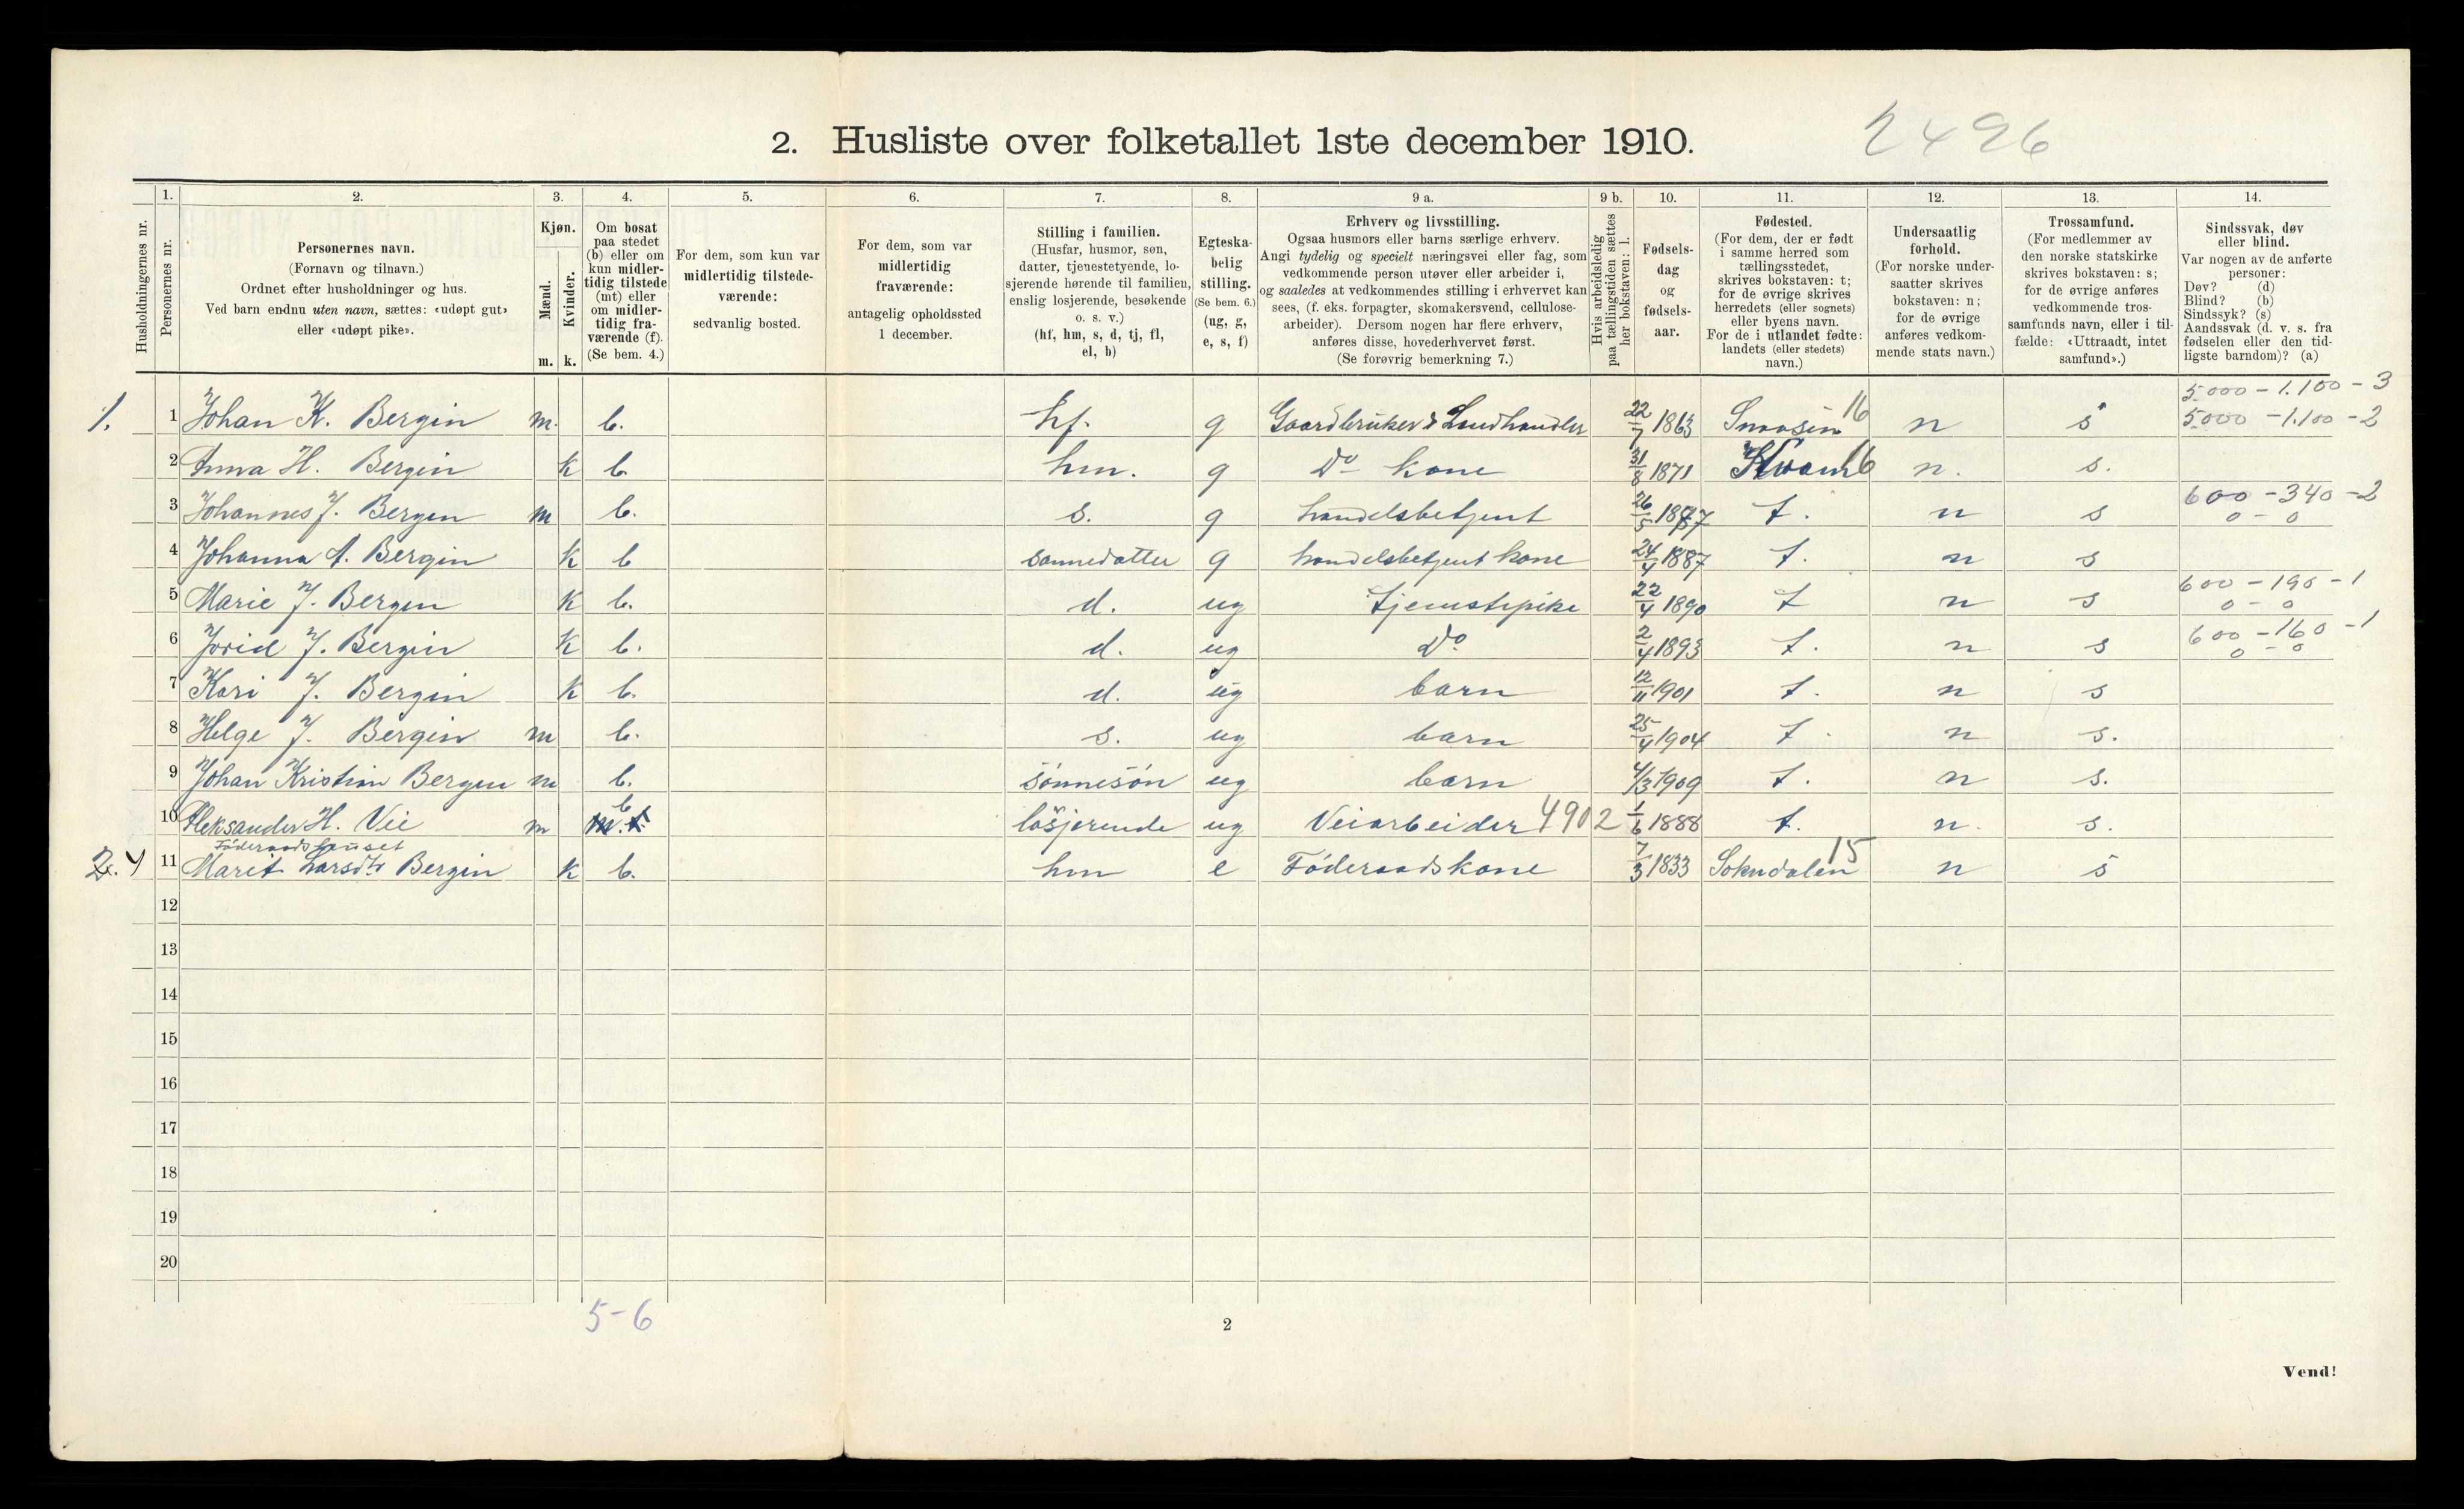 2. Husliste over folketallet 1ste december 1910. 2496
1. 2. 3. 4. 5. 6. 7. 8. 9 a. 9 b. 10. 11. 12. 13. 14.
Husholdningernes nr.
Personernes nr.
Personernes navn.
(Fornavn og tilnavn.)
Ordnet efter husholdninger og hus.
Ved barn endnu uten navn, sættes: «udøpt gut»
eller «udøpt pike».
Kjøn.
Mænd.
Kvinder.
m. k.
Om bosat
paa stedet
(b) eller om
kun midler-
tidig tilstede
(mt) eller
om midler-
tidig fra-
værende (f).
(Se bem. 4.)
For dem, som kun var
midlertidig tilstede-
værende:
sedvanlig bosted.
For dem, som var
midlertidig
fraværende:
antagelig opholdssted
1 december.
Stilling i familien.
(Husfar, husmor, søn,
datter, tjenestetyende, lo-
sjerende hørende til familien,
enslig losjerende, besøkende
o. s. v.)
(hf, hm, s, d, tj, fl,
el, b)
Egteska-
belig
stilling.
(Se bem. 6.)
(ug, g,
e, s, f)
Erhverv og livsstilling.
Ogsaa husmors eller barns særlige erhverv.
Angi tydelig og specielt næringsvei eller fag, som
vedkommende person utøver eller arbeider i,
og saaledes at vedkommendes stilling i erhvervet kan
sees, (f. eks. forpagter, skomakersvend, cellulose-
arbeider). Dersom nogen har flere erhverv,
anføres disse, hovederhvervet først.
(Se forøvrig bemerkning 7.)
Hvis arbeidsledig
paa tællingstiden sættes
her bokstaven: l.
Fødsels-
dag
og
fødsels-
aar.
Fødested.
(For dem, der er født
i samme herred som
tællingsstedet,
skrives bokstaven: t;
for de øvrige skrives
herredets (eller sognets)
eller byens navn.
For de i utlandet fødte:
landets (eller stedets)
navn.)
Undersaatlig
forhold.
(For norske under-
saatter skrives
bokstaven: n;
for de øvrige
anføres vedkom-
mende stats navn.)
Trossamfund.
(For medlemmer av
den norske statskirke
skrives bokstaven: s;
for de øvrige anføres
vedkommende tros-
samfunds navn, eller i til-
fælde: «Uttraadt, intet
samfund».)
Sindssvak, døv
eller blind.
Var nogen av de anførte
personer:
Døv? (d)
Blind? (b)
Sindssyk? (s)
Aandssvak (d. v. s. fra
fødselen eller den tid-
ligste barndom)? (a)
5.000 - 1.100 - 3
1. 1 Johan K. Bergin m. b. hf. g Gaardbruker & Landhandler 22/7 1863 Snaasin 16 n s 5.000 - 1.100 - 2
2 Anna H. Bergin k b hm. g Do kone 31/8 1871 Kvam 16 n. s.
600 - 340 - 2
3 Johannes J. Bergin m b. s. g handelsbetjent 26/5 1887 t. n s 0 - 0
4 Johanna A. Bergin k b sønnedatter g handelsbetjent kone 24/4 1887 t. n s
600 - 190 - 1
5 Marie J. Bergin k b. d. ug tjenestepike 22/4 1890 t n s 0 - 0
600 - 160 - 1
6 Jorid J. Bergin k b. d. ug Do 2/4 1893 t. n s 0 - 0
7 Kari J. Bergin k b. d. ug barn 12/11 1901 t. n s
8 Helge J. Bergin m b. s. ug barn 25/4 1904 t. n s.
9 Johan Kristian Bergin m b. sønnesøn ug barn 4/3 1909 t. n s.
10 Aleksander H. Vie m b losjerende ug Veiarbeider 4902 1/6 1888 t. n. s.
Føderaadshuset
2. 4 11 Marit Larsdtr Bergin k b. hm e Føderaadskone 7/3 1833 Sokndalen 15 n s
12
13
14
15
16
17
18
19
20
5-6
2
Vend!